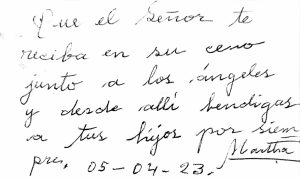 Que el Señor te
reciba en su ceno
junto a los ángeles
y desde allí bendigas
a tus hijos por siem
pre. 05-04-23. Martha